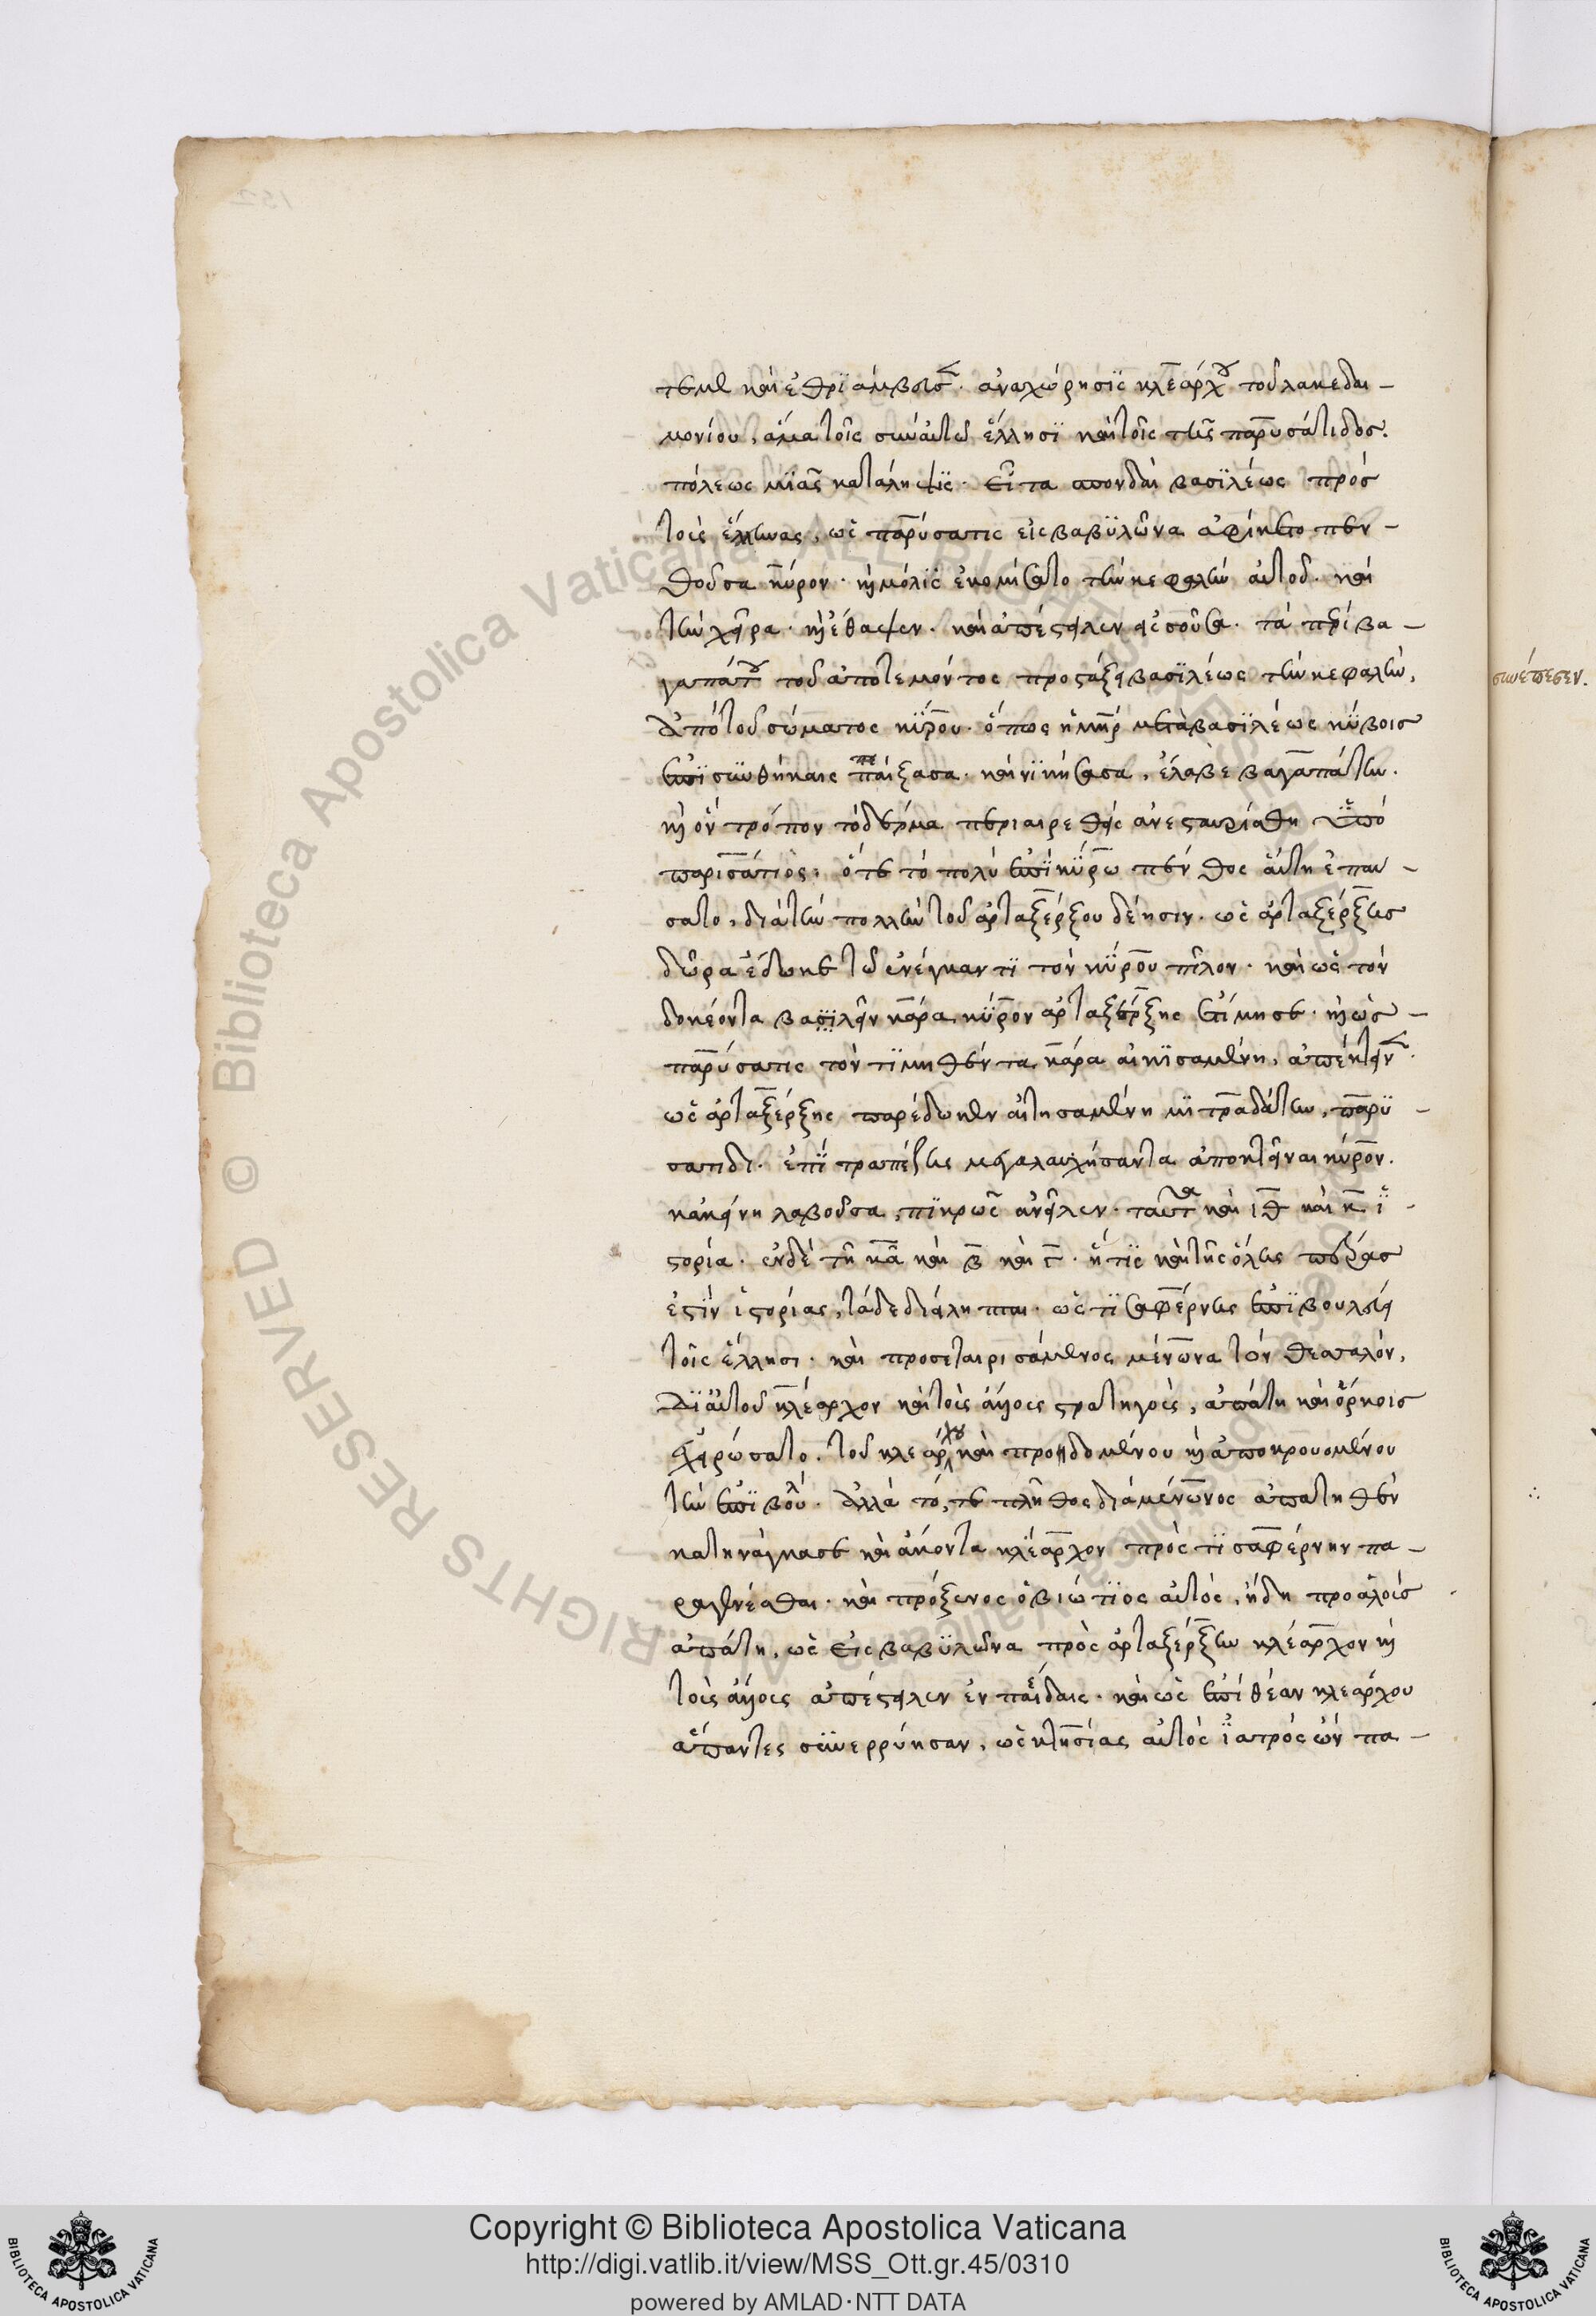 τεμε καὶ ἐθριάμβευσεν. ἀναχώρησις κλεάρχου τοῦ λακεδαι–
μονίου, ἅμα τοῖς σὺν αὐτῶ ἕλλησι καὶ τοῖς τῆς παρυσάτιδος.
πόλεως μιᾶς κατάληψις. εἶτα σπονδαὶ βασιλέως πρὸς
τοὺς ἕλληνας. ὡς παρύσατις εἰς βαβυλῶνα ἀφίκετο πεν–
θοῦσα κύρον. καὶ μόλις ἐκομίσατο τὴν κεφαλὴν αὐτοῦ. καὶ
τὴν χεῖρα. καὶ ἔθαψεν. καὶ ἀπέστειλεν εἰς σοῦσα. τὰ περὶ βα–
γαπάτου τοῦ ἀποτεμόντος προστάξει βασιλέως τὴν κεφαλὴν,
ἀπὸ τοῦ σώματος κύρου. ὅπως ἡ μήτηρ μετὰ βασιλέως κύβοις
ἐπὶ συνθήκαις παίξασα. καὶ νικήσασα, ἔλαβε βαγαπάτην.
καὶ ὃν τρόπον τὸ δέρμα περιαιρεθεὶς ἀνεσταυρίσθη ὑπὸ
παρισάτιος. ὅτε τὸ πολὺ ἐπὶ κύρω πένθος αὐτῆ ἐπαύ–
σατο, διὰ τὴν πολλὴν τοῦ ἀρταξέρξου δέησιν. ὡς ἀρταξέρξης
δῶρα ἔδωκε τῶ ἐνέγκαντι τὸν κύρου πῖλον. καὶ ὡς τὸν
δοκέοντα βασιλεῖν κᾶρα κύρον ἀρταξέρξης ἐτίμησε. καὶ ὡς–
παρύσατις τὸν τιμηθέντα κᾶρα αἰκισαμένη, ἀπέκτεινεν.
ὡς ἀρταξέρξης παρέδωκεν αἰτησαμένη μιτραδάτην, παρυ–
σατιδι. ἐπὶ τραπέζης μεγαλαυχήσαντα ἀποκτεῖναι κύρον.
κἀκείνη λαβοῦσα, πικρῶς ἀνεῖλεν. ταῦτα καὶ ιθ καὶ κ ἱ–
στορία. ἐν δὲ τῆ κα καὶ β καὶ γ. ἥτις καὶ τῆς ὅλης πέρας
ἐστὶν ἱστορίας, τάδε διείληπται. ὡς τισαφέρνης ἐπιβουλεύει
τοῖς ἕλλησι. καὶ προσεταιρισάμενος μένωνα τὸν θεσσαλόν,
δι αὐτοῦ κλέαρχον καὶ τοὺς ἄλλους στρατηγούς, ἀπάτη καὶ ὅρκοις
ἐχειρώσατο. τοῦ κλεάρχου καὶ προϊδομένου καὶ ἀποκρουομένου
τὴν ἐπιβουλήν. ἀλλὰ τό, τε πλῆθος διὰ μένωνος ἀπατηθὲν
κατηνάγκασε καὶ ἄκοντα κλέαρχον πρὸς τισαφέρνην πα–
ραγενέσθαι. καὶ πρόξενος ὁ βιώτιος αὐτός, ἤδη προαλοὺς
ἀπάτη. ὡς εἰς βαβυλῶνα πρὸς ἀρταξέρξην κλέαρχον καὶ
τοὺς ἄλλους ἀπέστειλεν ἐν παίδαις. καὶ ὡς ἐπὶ θέαν κλεάρχου
ἅπαντες συνερρύησαν. ὡς κτησίας αὐτὸς ἰατρὸς ὢν πα–
συνέπεσεν.
Copyright © Biblioteca Apostolica Vaticana
http://digi.vatlib.it/view/MSS_Ott.gr.45/0310
powered by AMLAD·NTT DATA